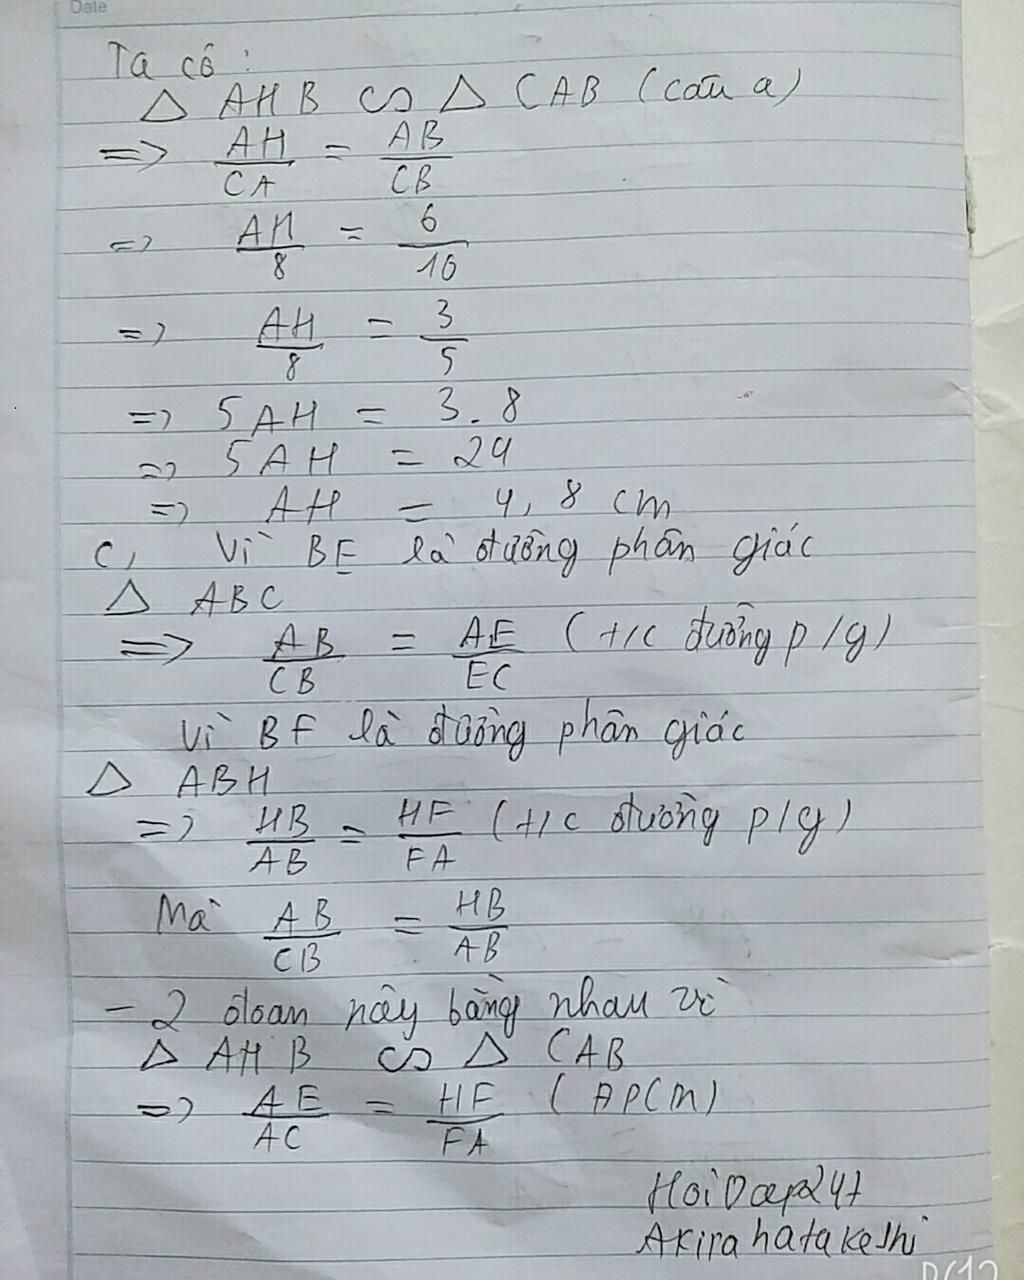 Date
Ta có:
△ AHB ∽ △ CAB (câu a)
=> AH/CA = AB/CB
=> AH/8 = 6/10
=> AH/8 = 3/5
=> 5AH = 3.8
=> 5AH = 24
=> AH = 4,8 cm
c, Vì BE là đường phân giác
△ ABC
=> AB/CB = AE/EC (t/c đường p/g)
Vì BF là đường phân giác
△ ABH
=> HB/AB = HF/FA (t/c đường p/g)
Mà AB/CB = HB/AB
- 2 đoan này bằng nhau vì
△ AHB ∽ △ CAB
=> AE/AC = HF/FA (ĐPCM)
HoiDap247
Akirahatakeshi